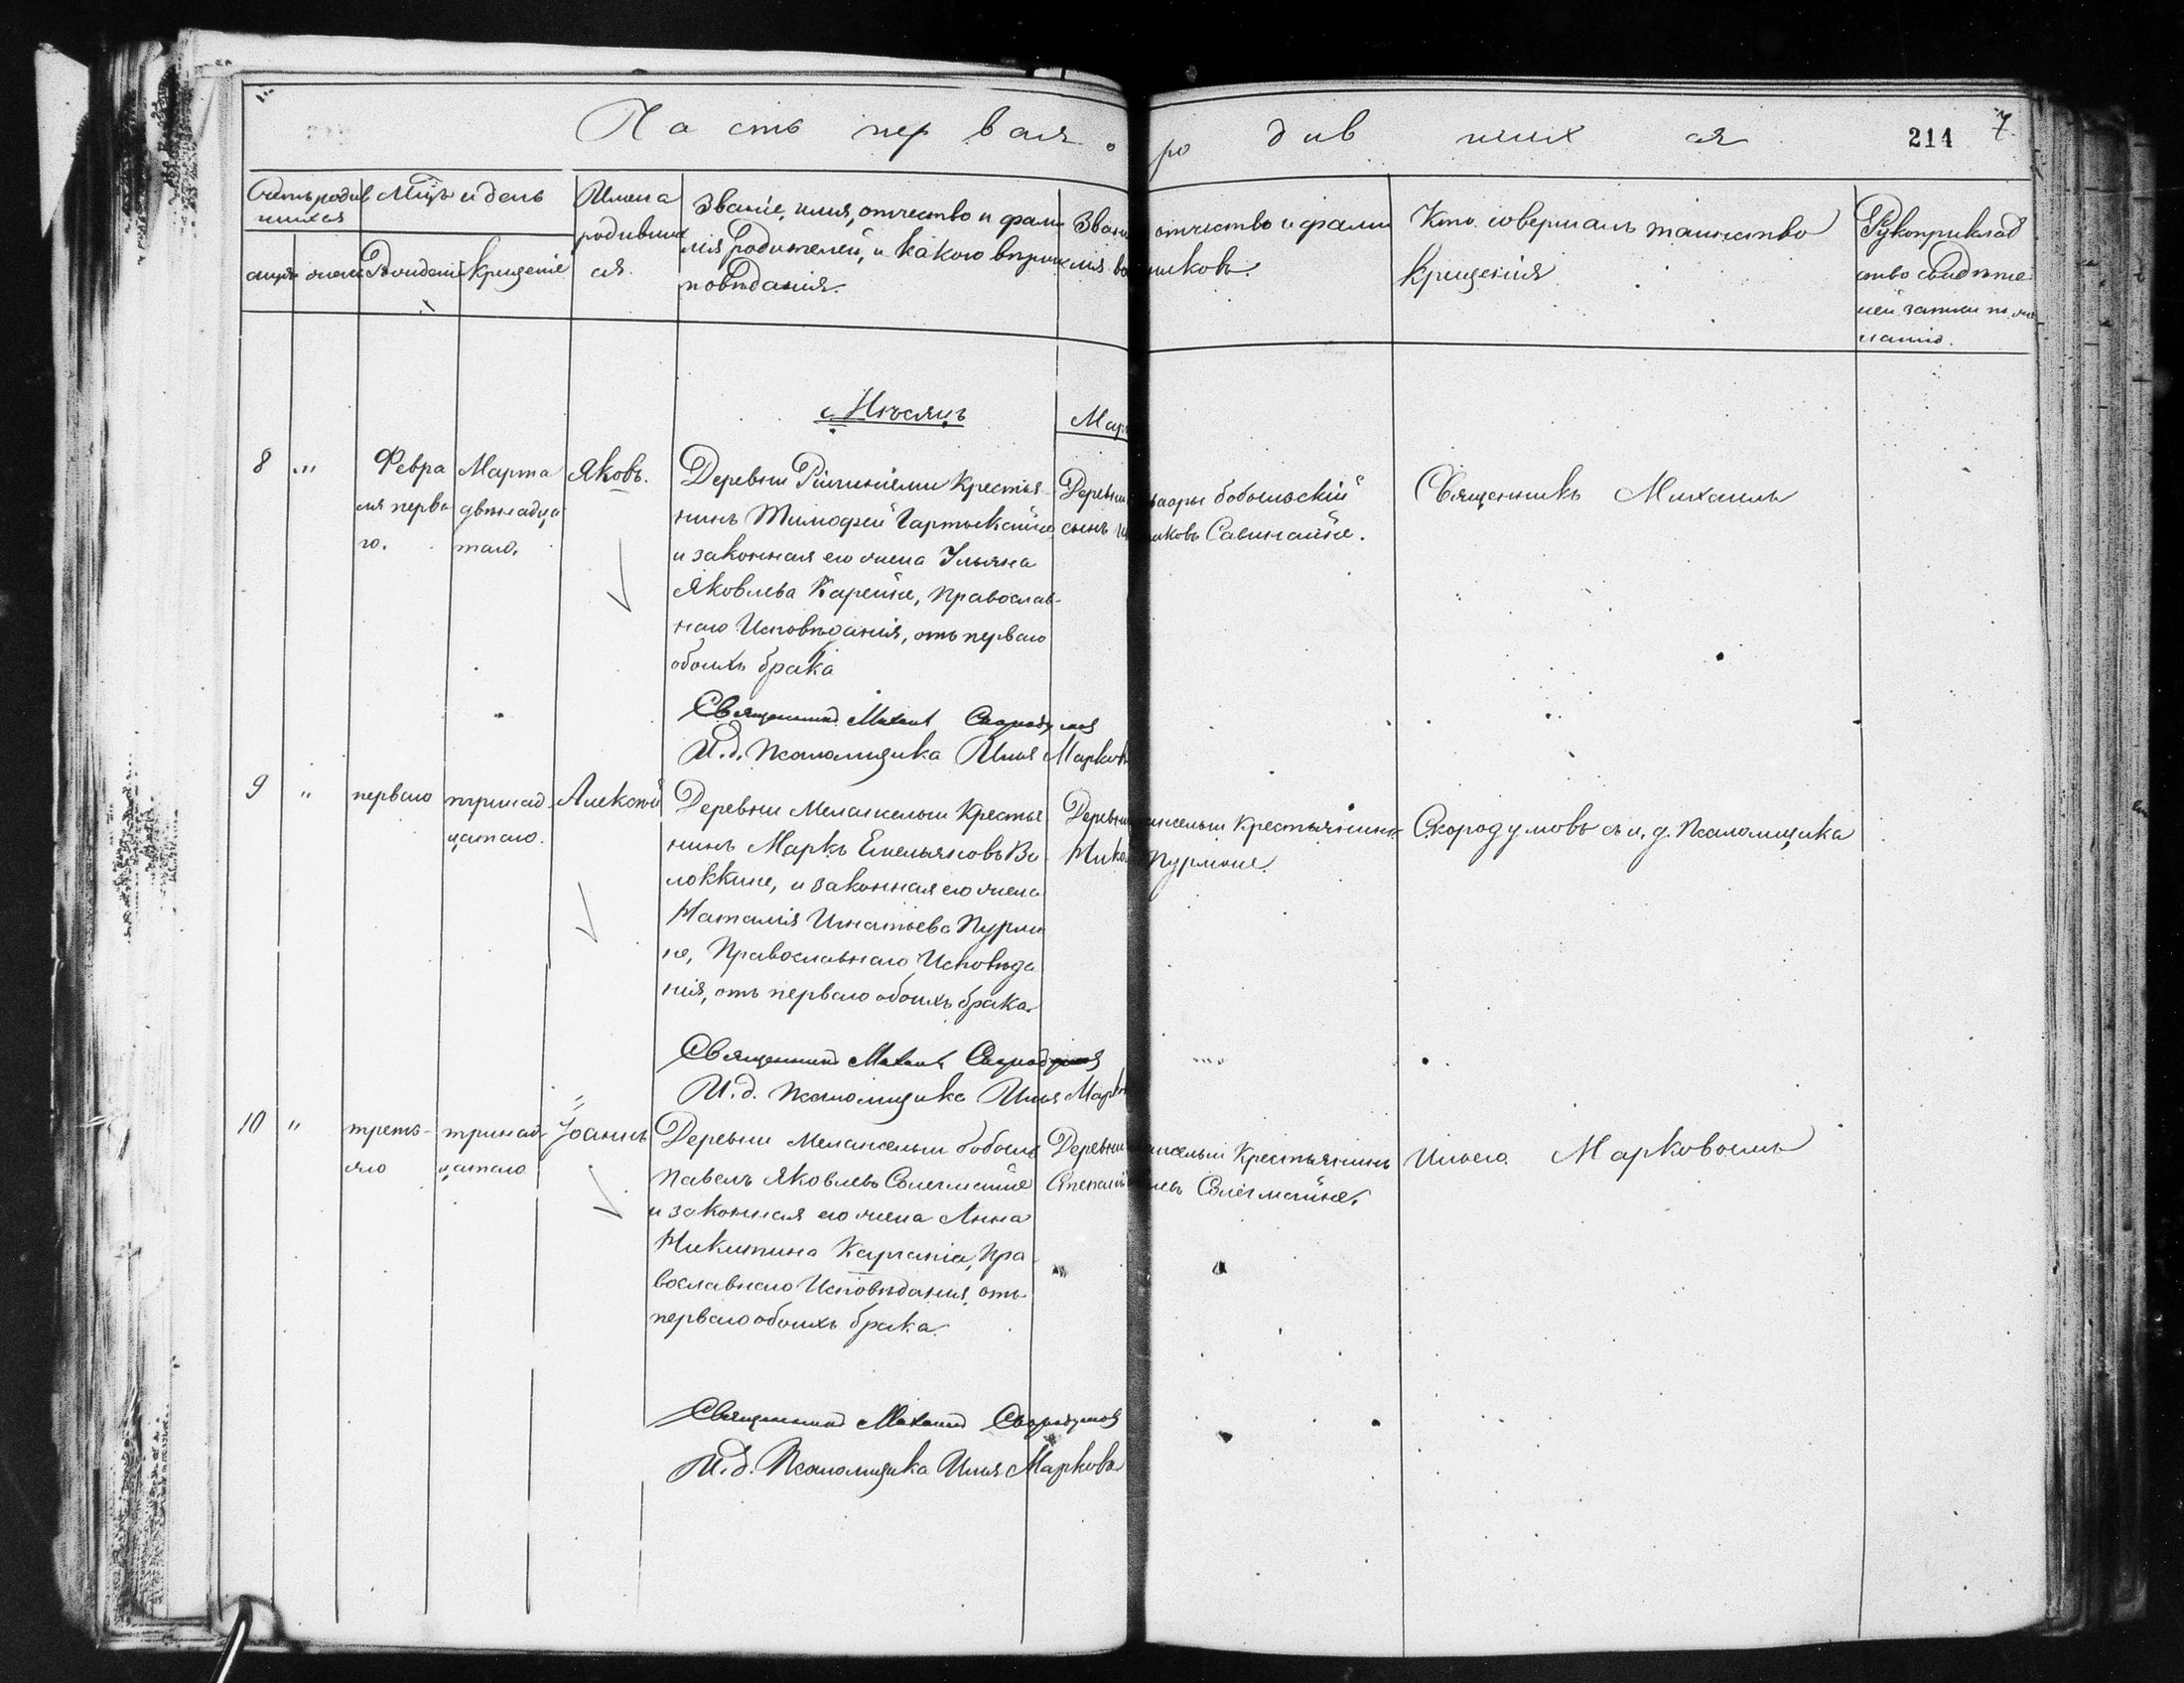 Часть первая. родившихся
214 7
Счетъ родив
шихся
Мѣцъ и день
Имена
родивших
ся.
Званіе, имя, отчество и фами
лія родителей, и какого вѣроис
повѣданія.
отчество и фами
Кто совершалъ таинство
крещенія
Рукоприклад
ство свидѣте
лей записи по же
ланію.
Рожденіе крещеніе
Мѣсяцъ
8 "
Февра
ля перва
го.
Марта
двѣнадца
таго.
Яковъ.
Деревни крестья
нинъ Тимофей
и законная его жена Ульяна
Яковлева Карейне, Православ-
наго Исповѣданія, отъ перваго
обоихъ брака
Деревни
сынъ
бобыльскій
Савинайне.
Священникъ Михаилъ
Священникъ Михаилъ Скородумов
И. д. Псаломщика Илья Марковъ
9 "
перваго
тринад-
цатаго.
Алексѣй
Деревни Меланселги Крестья
нинъ Маркъ Емельяновъ Ви
локкине, и законная его жена
Наталія Игнатьева Пурми
не, Православнаго Исповѣда
нія, отъ перваго обоихъ брака.
Деревни
Крестьянинъ
Пурмоне.
Скородумовъ съ и. д. Псаломщика
Священникъ Михаилъ Скородумов
И. д. Псаломщика Илья Марков
10 "
треть-
яго
тринад
цатаго
Іоаннъ
Деревни Меланселги бобыль
Павелъ Яковлевъ
и законная его жена Анна
Никитина Пра
вославнаго Исповѣданія, отъ
перваго обоихъ брака.
Деревни
Крестьянинъ
Ильею Марковымъ
Священникъ Михаилъ Скородумов
И. д. Псаломщика Илья Марковъ